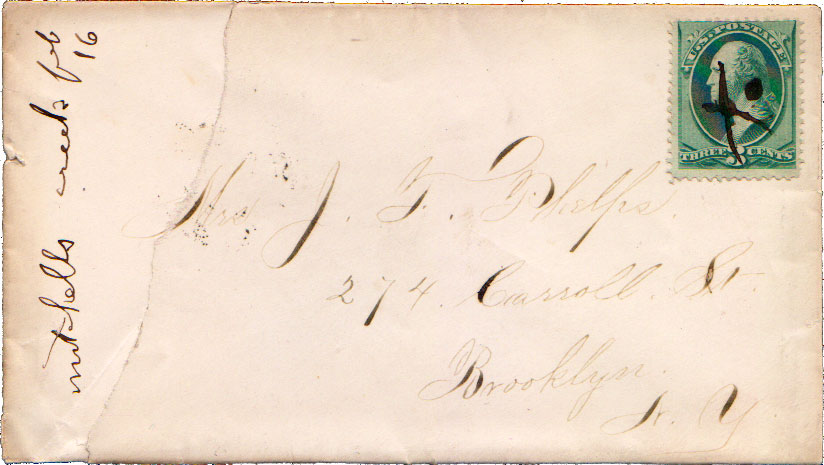 mitchells creek feb
16
U.S. POSTAGE
THREE 3 CENTS
Mrs J. F. Phelps.
274. Carroll. St.
Brooklyn.
N. Y